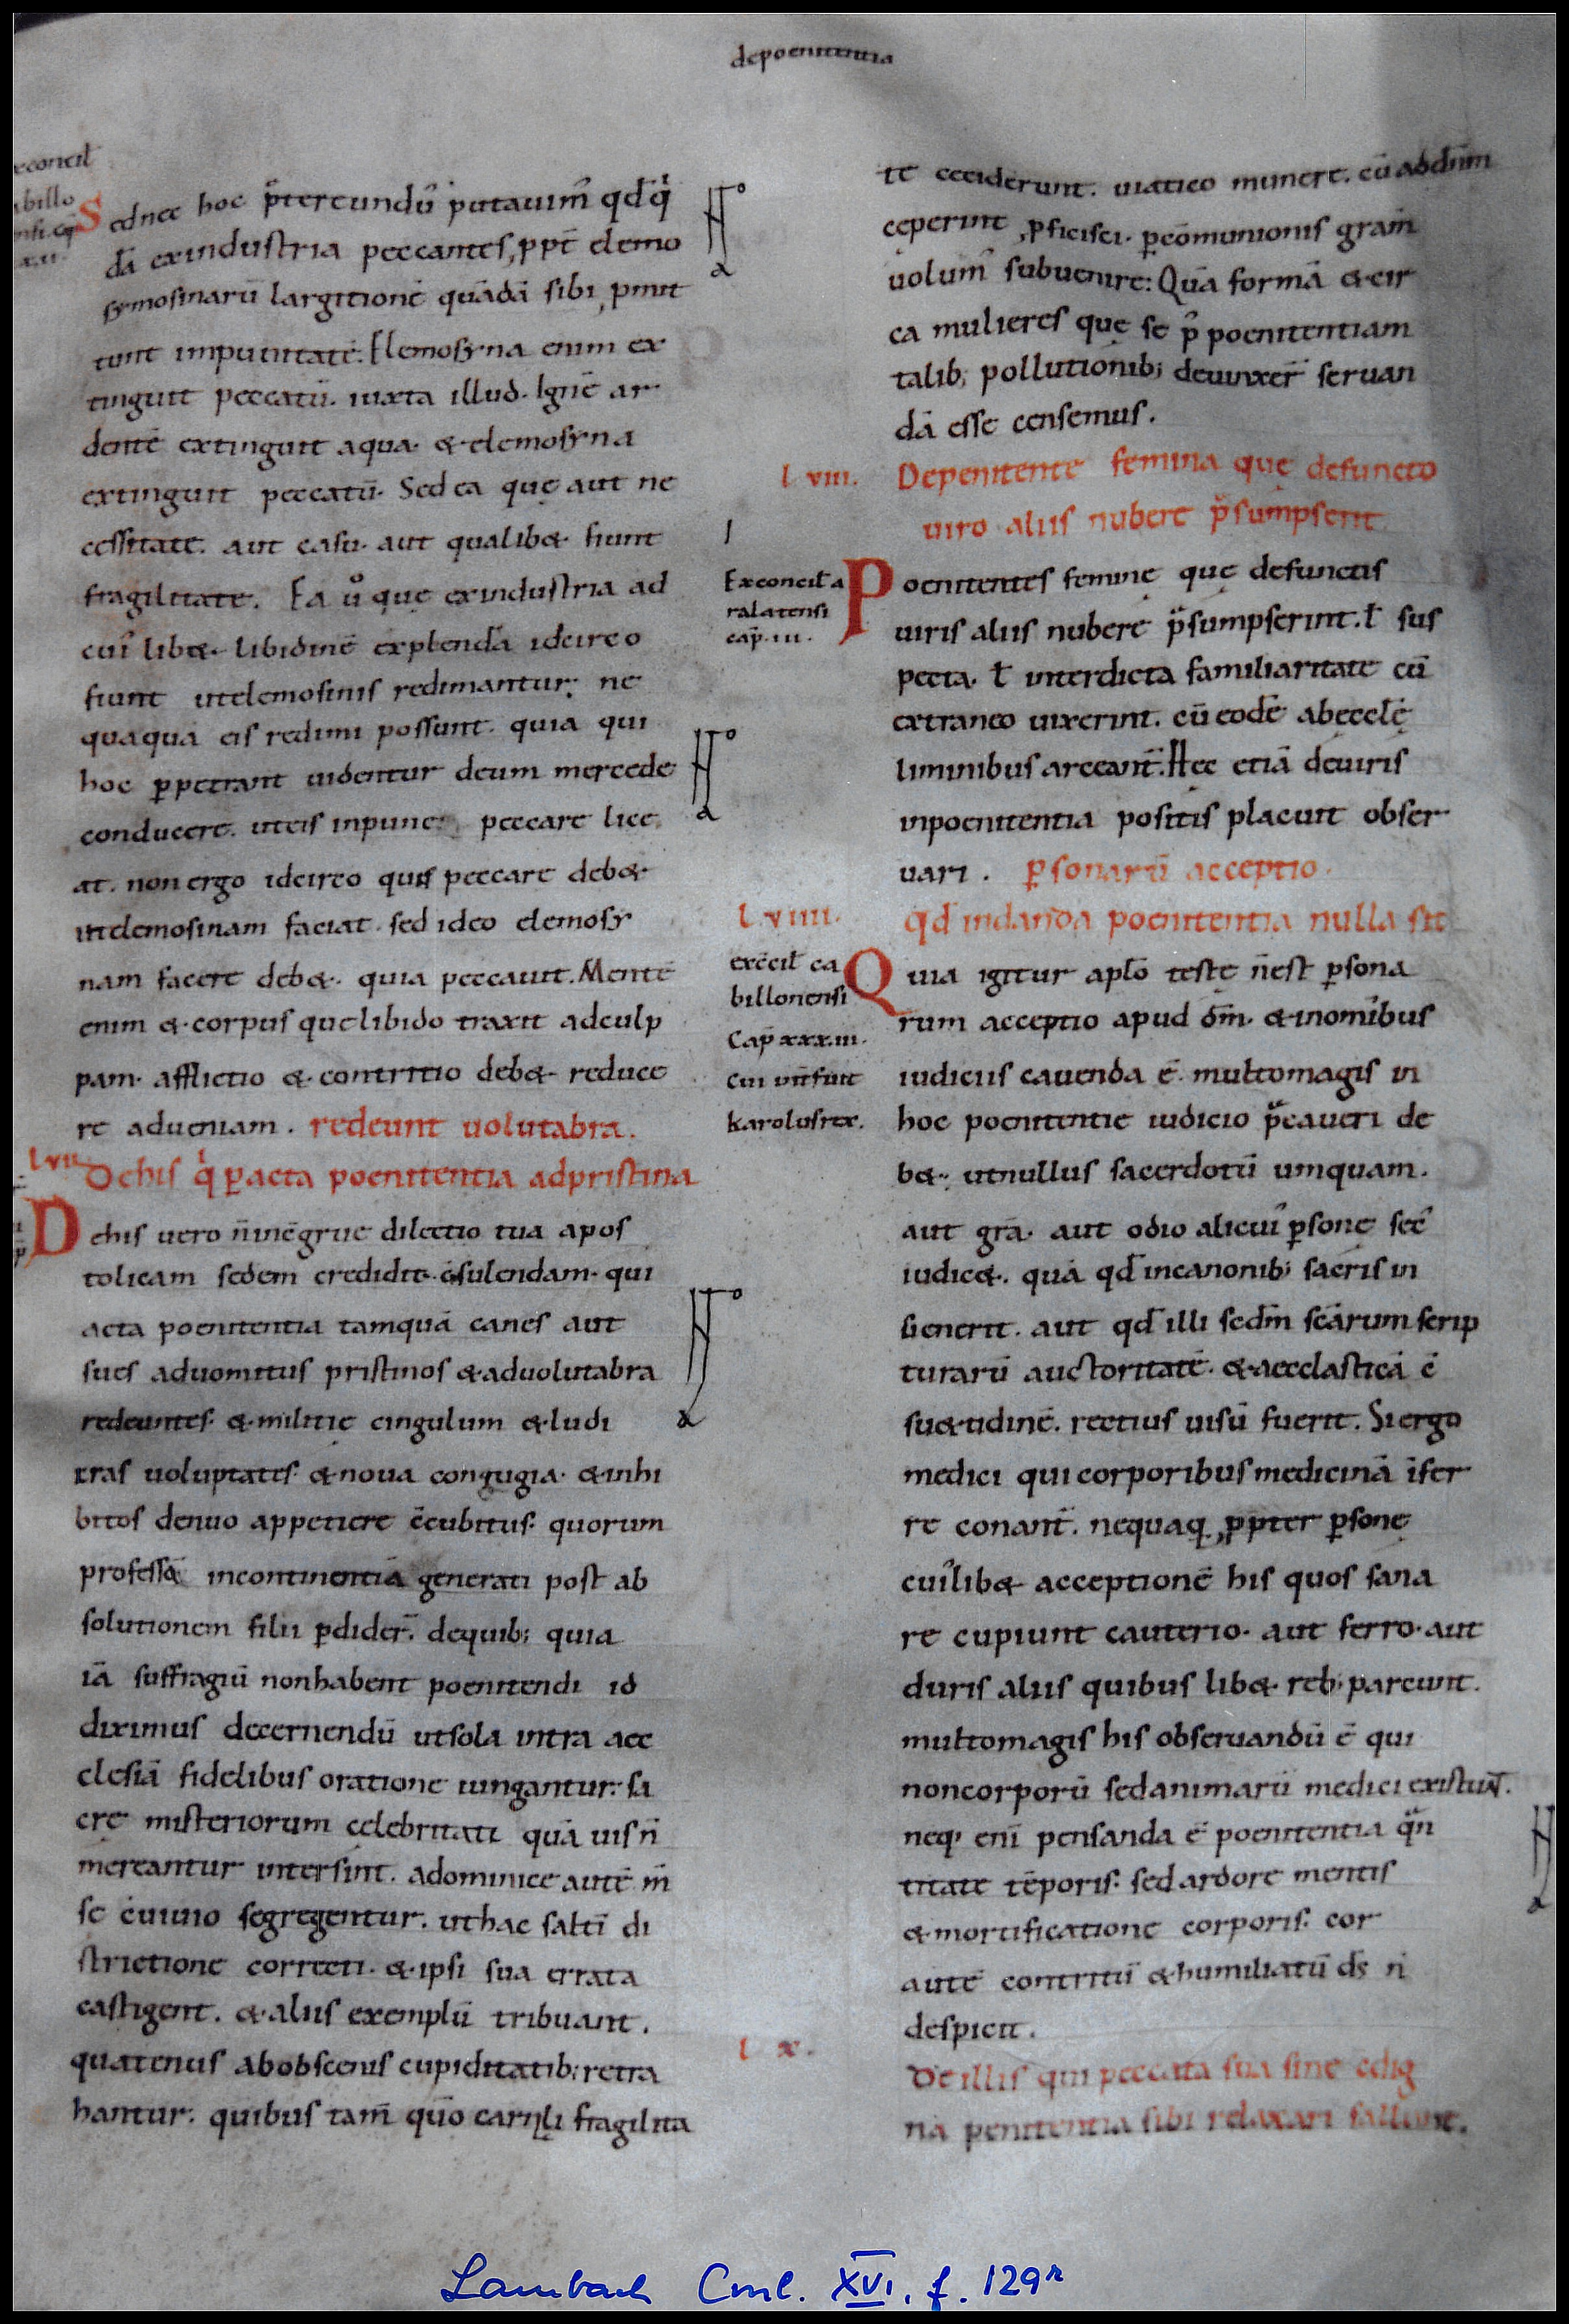 depoenitentia
econcil̄
abillo
nsi. cap̄
x.vi.
Sednec hoc p̄tereundū putauim̄ qd̄q̇
dā exindustria peccantes, ppt̄ elemo
symosinarū largitionē quādā sibi, pmit
tunt inpunitatē. Elemosyna enim ex
tinguit peccatū. iuxta illud. Ignē ar
dentē extinguit aqua. & elemosyna
extinguit peccatū. Sed ea quę aut ne
cessitate. aut casu. aut qualib&. fiunt
fragilitate. Ea ů quę exindustria ad
cui᷒ lib&. libidinē explendā idcirco
fiunt utelemosinis redimantur; ne
quaquā eis redimi possunt. quia qui
hoc ꝑpetrant uidentur deum mercede
conducere. uteis inpune peccare lice
at. non ergo idcirco quis peccare deb&
utelemosinam faciat. sed ideo elemosy
nam facere deb&. quia peccauit. Mentē
enim & corpus que libido traxit adculp
pam. afflictio & contritio deb& reduce
re adueniam. redeunt uolutabra.
l.vii. Dehis q̇ ꝑacta poenitentia adpristina
Dehis uero n̄inc̄gruę dilectio tua apos
tolicam sedem credidit. c̄sulendam. qui
acta poenitentia tamquā canes aut
sues aduomitus pristinos & aduolutabra
redeuntes. & militię cingulum & ludi
cras uoluptates. & noua congugia. & inhi
bitos denuo appetiere c̄cubitus. quorum
professā incontinentiā generati post ab
solutionem filii ꝑdider̄. dequib; quia
iā suffragiū nonhabent poenitendi id
diximus decernendū utsola intra aec
clesiā fidelibus oratione iungantur. sa
crę misteriorum celebritati quāuis n̄
mereantur intersint. adominice autē m̄
se c̄uiuio segregentur. uthac saltī di
strictione correcti. & ipsi sua errata
castigent. & aliis exemplū tribuant.
quatenus abobscenis cupiditatib; retra
hantur: quibus tam̄ quō carnali fragilita
te ceciderunt. uiatico munere. cū addn̄m
ceperint ,pficisci. ꝑcōmunionis gram̄
uolum᷒ subuenire: Quā formā & cir
ca mulieres quę se p᷒ poenitentiam
talib; pollutionib; deuinxer̄ seruan
dā esse censemus.
l viii. Depenitente femina quę defuncto
uiro aliis nubere p̄sumpserit
Exconcil̄ a
ralatensi
cap̄. iii.
Poenitentes feminę quę defunctis
uiris aliis nubere p̄sumpserint. ł sus
pecta. ł interdicta familiaritate cū
extraneo uixerint. cū eodē abęcclę̄
liminibus arceant̄. Hec etiā deuiris
inpoenitentia positis placuit obser
uari. ꝑsonarū acceptio.
l viiii. qd̄ indanda poenitentia nulla sit
excc̄il̄ ca
billonensi
Cap̄ xxx.iii.
cui int̄fuit
karolusrex.
Quia igitur apl̄o teste n̄est ꝑsona
rum acceptio apud dm̄. & inomībus
iudiciis cauenda ē. multomagis in
hoc poenitentie iudicio p̄caueri de
b&. utnullus sacerdotū umquam.
aut grā. aut odio alicui᷒ ꝑsonę sec᷒
iudic&. quā qd̄ incanonib; sacris in
uenerit. aut qd̄ illi sedm̄ scārum scrip
turarū auctoritatē. & aecclasticā c̄
su&udinē. rectius uisū fuerit. Si ergo
medici qui corporibus medicinā īfer
re conant̄. nequaq̄ ,ppter ꝑsonę
cui᷒lib& acceptionē his quos sana
re cupiunt cauterio. aut ferro. aut
duris aliis quibus lib& reb; parcunt.
multomagis his obseruandū ē qui
noncorporū sedanimarū medici existunt.
neq; enī pensanda ē poenitentia q̄n
titate tēporis. sed ardore mentis
& mortificatione corporis. cor
autē contritū & humiliatū ds̄ n̄
despicit.
l x. De illis qui peccata sua sine cdig
na penitentia sibi relaxari fallunt.
Lambach Cml. XVI, f. 129r